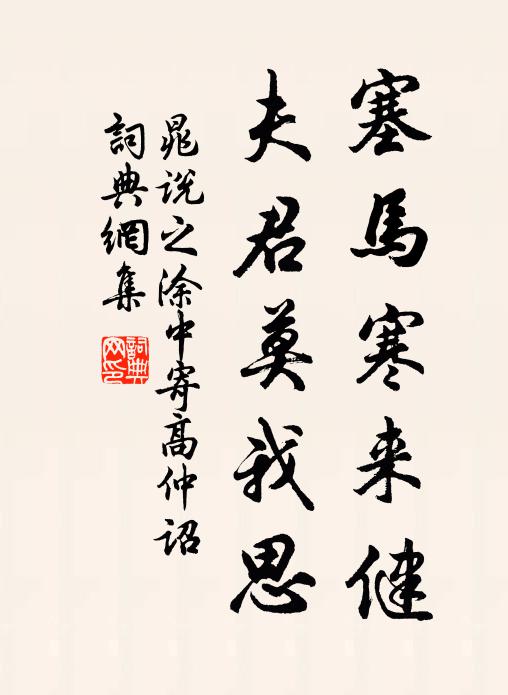 塞馬寒来健
夫君莫我思
晁說之涂中寄高仲詔
詞典網集
詞典
网印